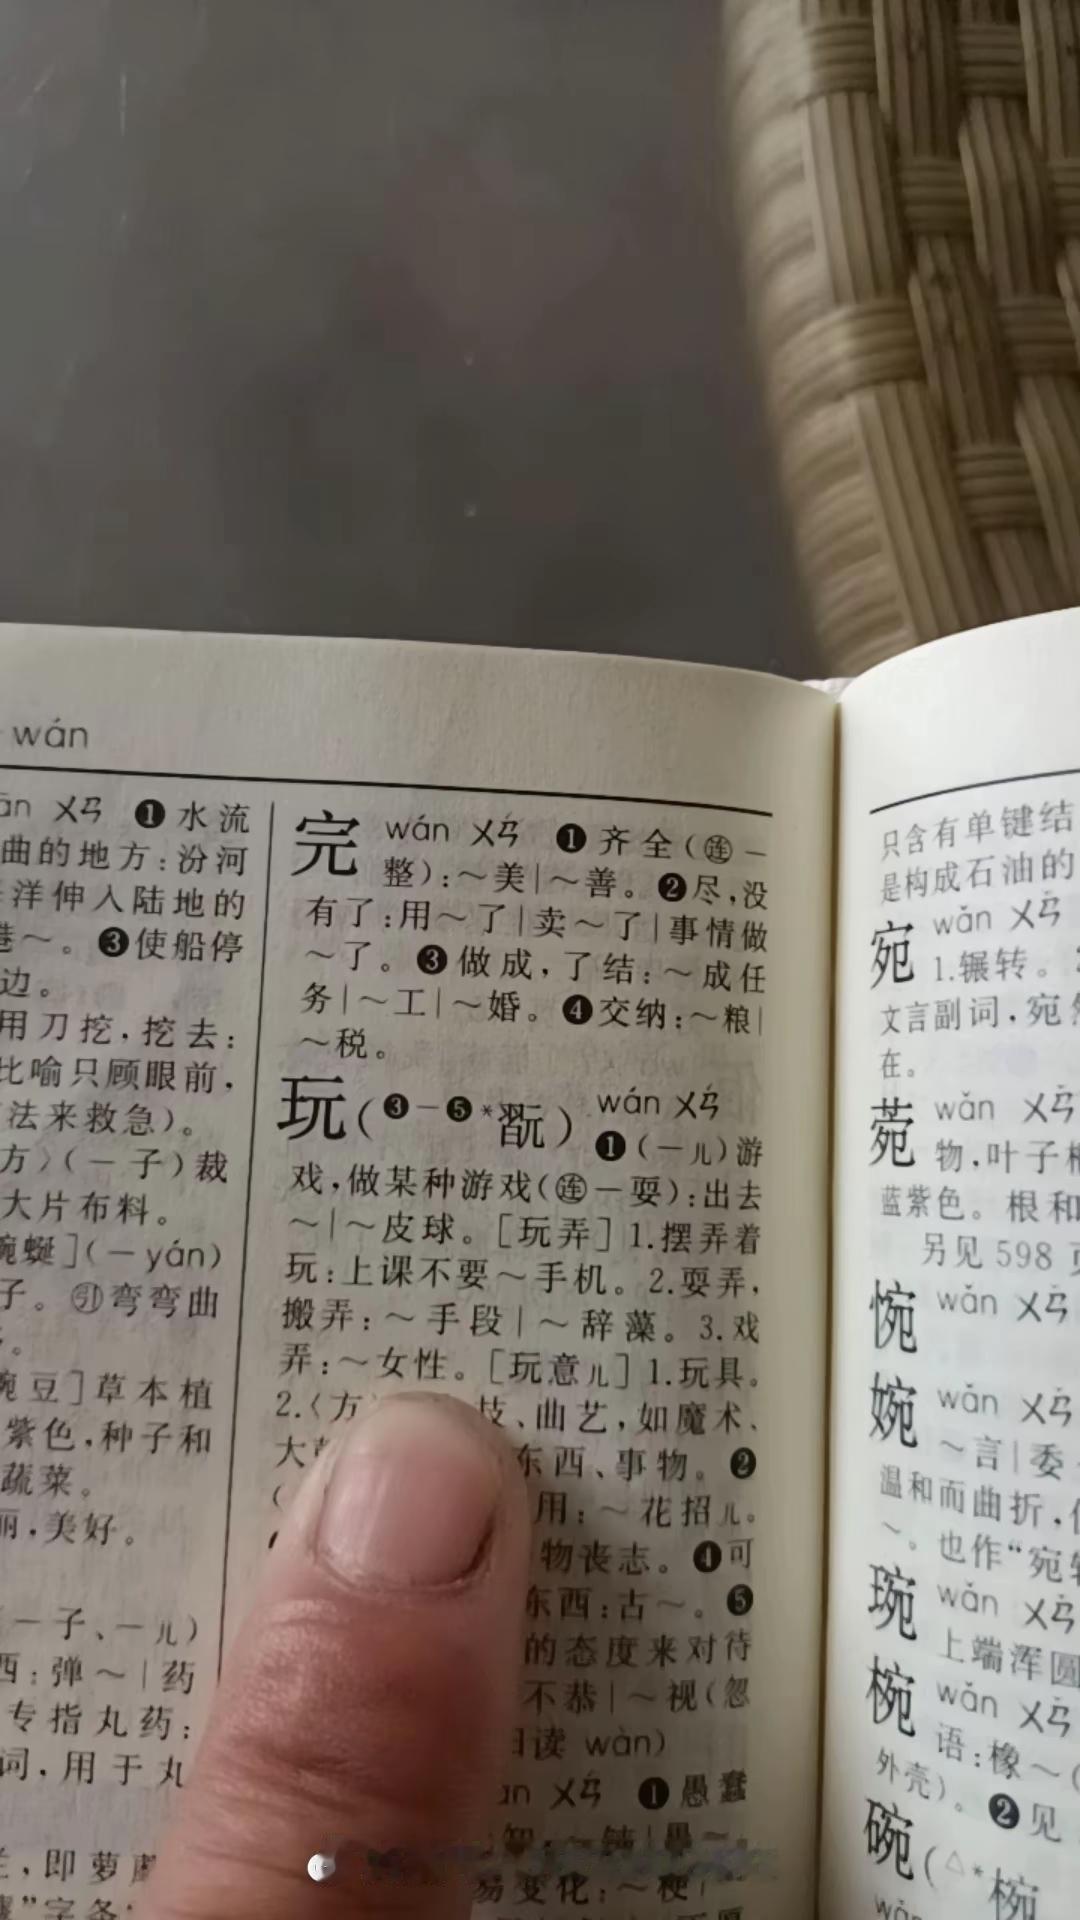 wán
ān ㄨㄢ ❶水流
曲的地方:汾河
洋伸入陆地的
港～。❸使船停
边。
用刀挖,挖去:
比喻只顾眼前,
法来救急)。
方〉(一子)裁
大片布料。
蜿蜒](-yán)
子。㊁弯弯曲
豌豆]草本植
紫色,种子和
蔬菜。
丽,美好。
一子、一儿)
西:弹～|药
专指丸药:
词,用于丸
即萝藦
”字条
完 wán ㄨㄢˊ ❶齐全(㊥一
整):～美|～善。❷尽,没
有了:用～了|卖～了|事情做
～了。❸做成,了结:～成任
务|～工|～婚。❹交纳:～粮|
～税。
玩(❸-❺*翫) wán ㄨㄢˊ
❶(一儿)游
戏,做某种游戏(㊥一耍):出去
～|～皮球。[玩弄]1.摆弄着
玩:上课不要～手机。2.耍弄,
搬弄:～手段|～辞藻。3.戏
弄:～女性。[玩意儿]1.玩具。
2.〈方 技、曲艺,如魔术、
大 东西、事物。❷
用:～花招儿。
物丧志。❹可
东西:古～。❺
的态度来对待
不恭|～视(忽
旧读 wàn)
ㄨㄢˊ ❶愚蠢
易变化:～梗|
只含有单键结
是构成石油的
宛 wǎn ㄨㄢˇ
1.辗转。
文言副词,宛然
在。
菀 wǎn ㄨㄢˇ
物,叶子
蓝紫色。根和
另见 598 页
惋 wǎn ㄨㄢˇ
婉 wǎn ㄨㄢˇ
～言|委
温和而曲折,
～。也作“宛转
琬 wǎn ㄨㄢˇ
上端浑圆
椀 wǎn ㄨㄢˇ
语:橡～(
外壳)。❷见
碗(△*椀